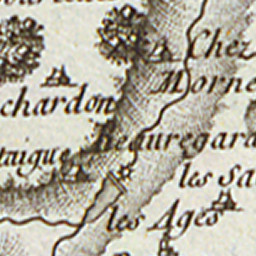 Chez
Morne
chardon
Beauregard
taigue
les Sa
les Ages